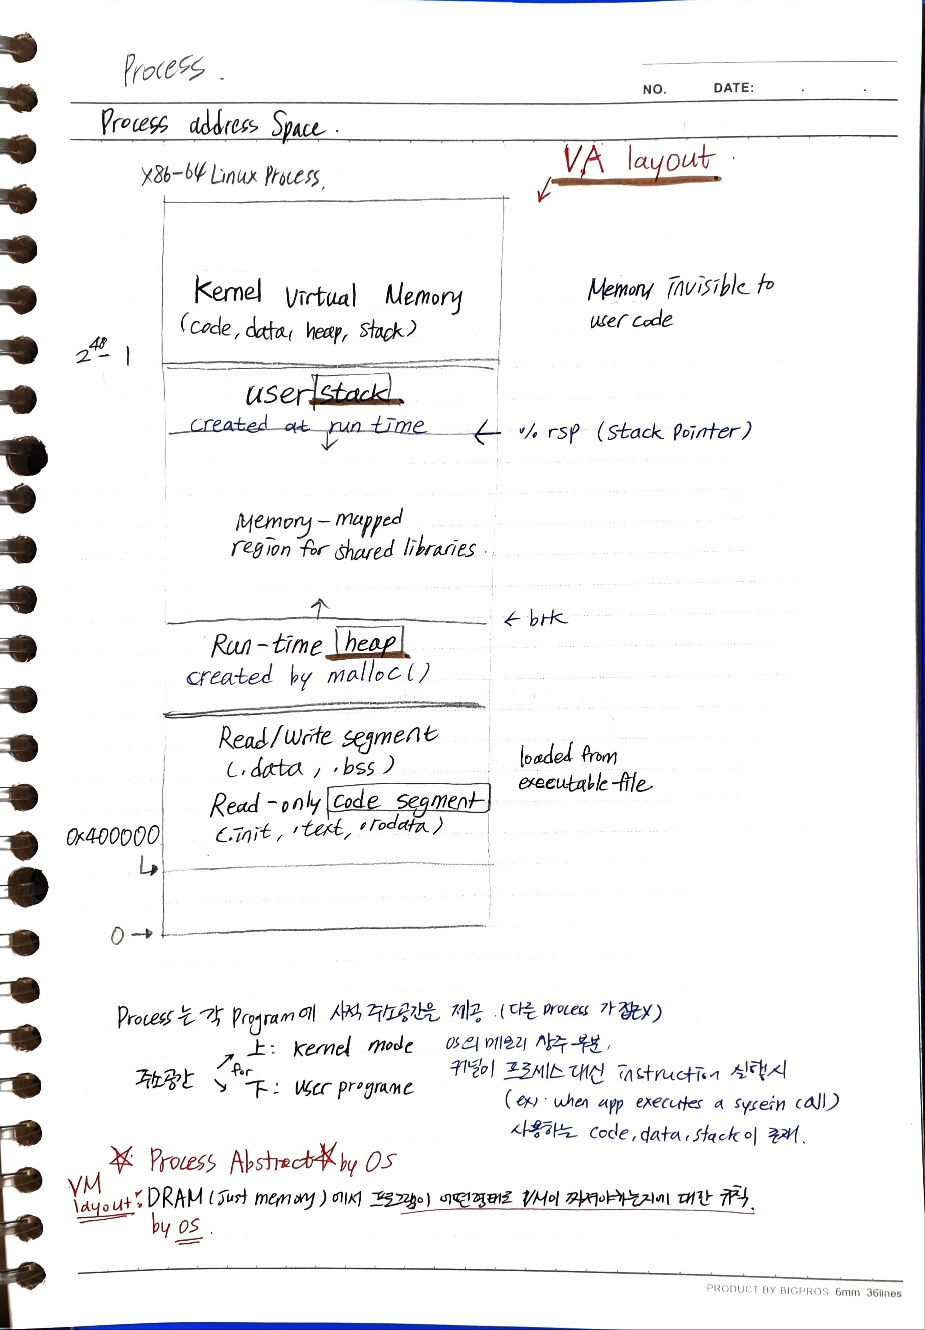 Process.
NO. DATE: . .
Process address Space.
VA layout.
X86-64 Linux Process.
Kernel Virtual Memory
(code, data, heap, stack)
Memory invisible to
user code
2^48 - 1
user stack
created at run time
← % rsp (Stack Pointer)
↓
Memory-mapped
region for shared libraries.
↑
← brk
Run-time heap
created by malloc()
Read/Write segment
(.data, .bss)
loaded from
executable file
Read-only code segment
(.init, .text, .rodata)
0x400000
0 →
Process는 각 Program에 사적 주소공간을 제공. (다른 process가 접근X)
주소공간 for
上: Kernel mode
OS의 메모리 상주 부분.
커널이 프로세스 대신 instruction 실행시
(ex). when app executes a system call)
사용하는 code, data, stack이 존재.
下: User programe
☆ Process Abstract☆ by OS
VM
layout: DRAM (Just memory)에서 프로그램이 어떤형태로 VM이 짜져야하는지에 대한 규칙.
by OS.
PRODUCT BY BIGPROS 6mm 36lines